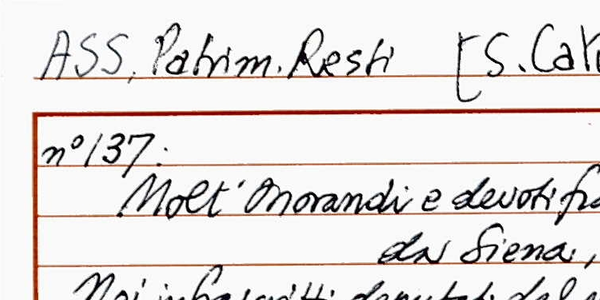 ASS, Patrim. Resti [S. Cat
n° 137:
Molt' Onorandi e devoti fra
da Siena,
Noi infrascritti deputati del